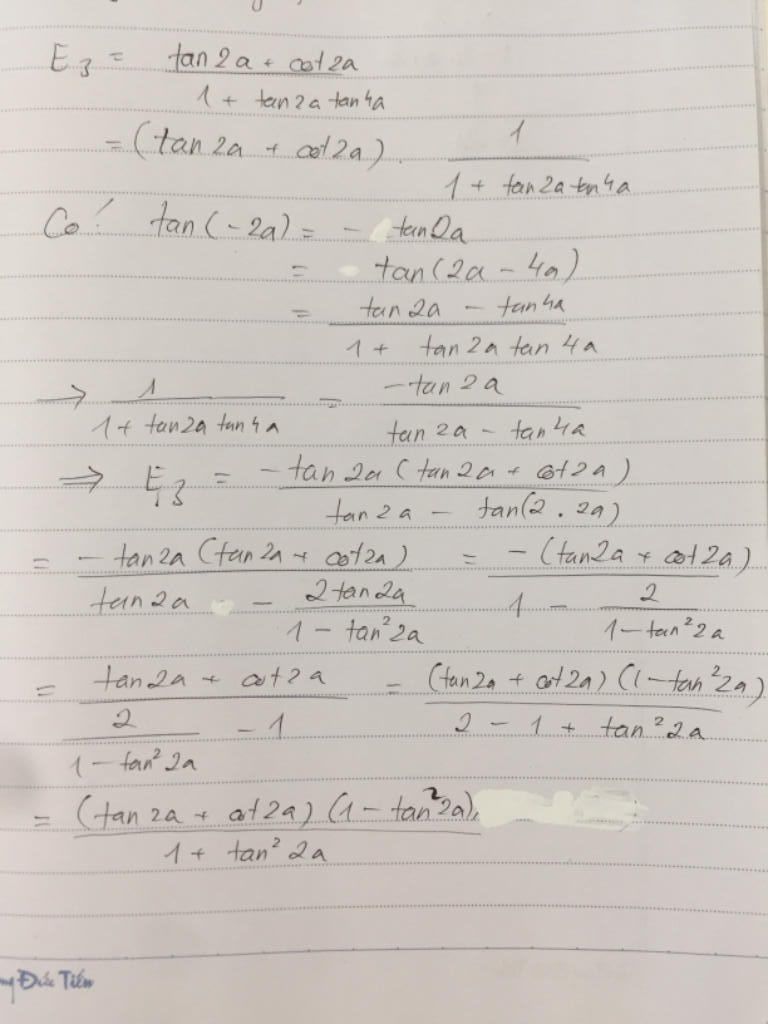 E₃ = (tan2a + cot2a) / (1 + tan2a tan4a)
= (tan 2a + cot2a) . 1 / (1 + tan2a tan4a)
Có! tan(-2a) = - tan2a
= tan(2a - 4a)
= (tan 2a - tan4a) / (1 + tan2a tan 4a)
→ 1 / (1 + tan2a tan4a) = -tan 2a / (tan 2a - tan4a)
⇒ E₃ = -tan 2a (tan2a + cot2a) / (tan2a - tan(2 . 2a))
= -tan2a (tan2a + cot2a) / (tan2a - 2tan2a / (1 - tan²2a)) = -(tan2a + cot2a) / (1 - 2 / (1-tan²2a))
= (tan2a + cot2a) / (2 / (1-tan²2a) - 1) = (tan2a + cot2a) (1-tan²2a) / (2 - 1 + tan²2a)
= (tan 2a + cot2a) (1 - tan²2a) / (1 + tan² 2a)
Đức Tiến